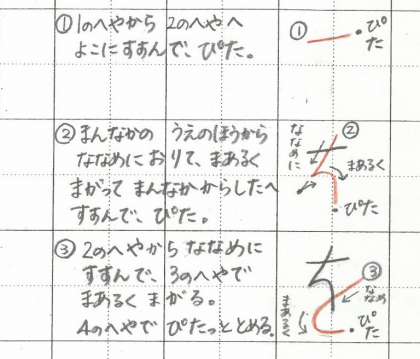 ①1のへやから 2のへやへ
よこにすすんで、ぴた。
①
ぴた
②まんなかの うえのほうから
ななめにおりて、まあるく
まがって まんなかからしたへ
すすんで、ぴた。
②
ななめに
まあるく
ぴた
③2のへやから ななめに
すすんで、3のへやで
まあるく まがる。
4のへやで ぴたっととめる。
③
ななめ
まあるく
ぴた